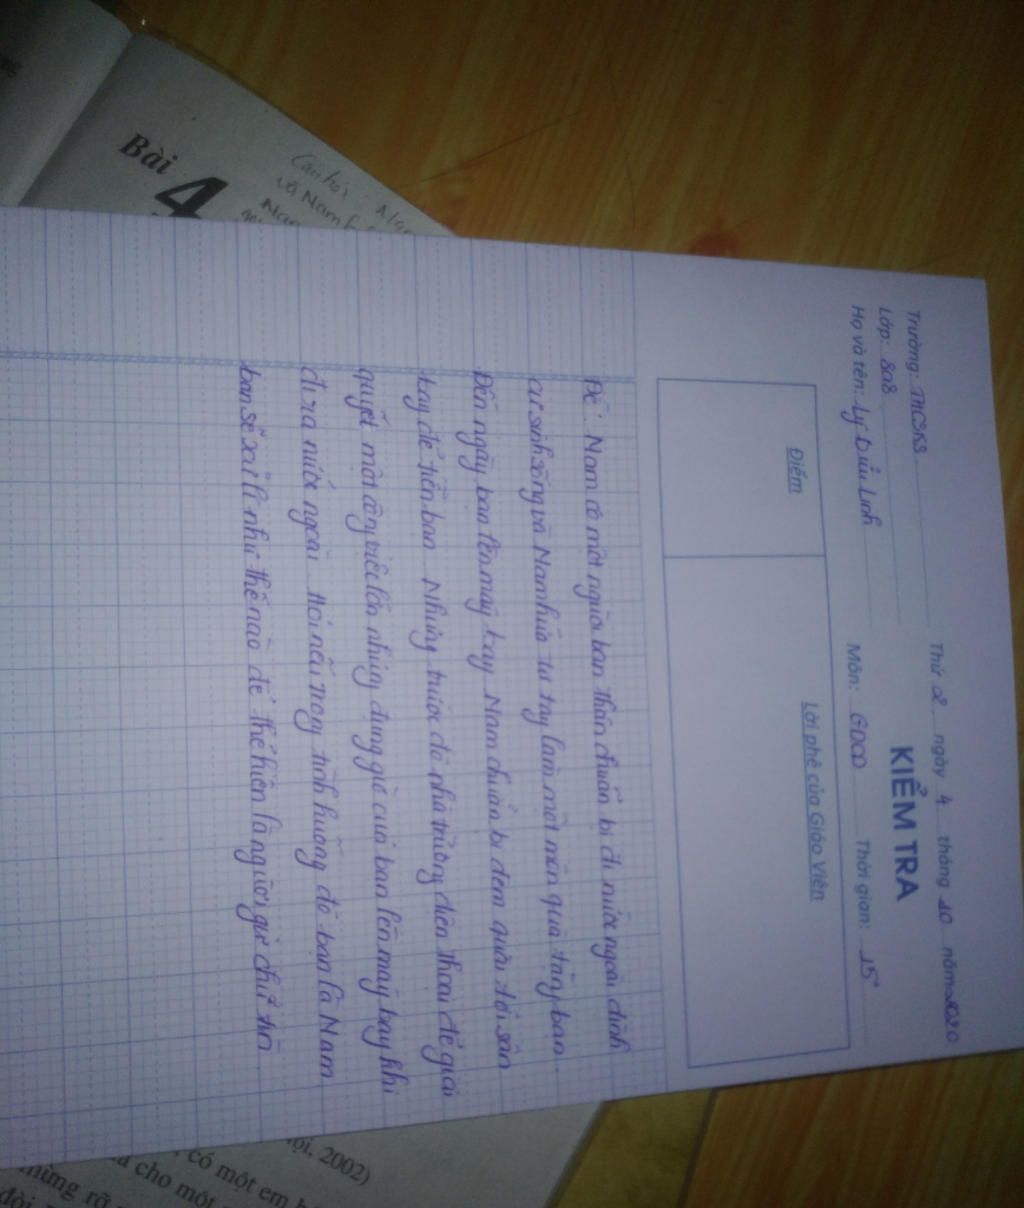 Thứ 2 ngày 4 tháng 10 năm 2020
Trường: THCSKS
KIỂM TRA
Lớp: 8a8
Họ và tên: Lý Diệu Linh
Môn: GDCD
Thời gian: 15'
Điểm
Lời phê của Giáo Viên
Đề: Nam có một người bạn thân chuẩn bị đi nước ngoài định
cư sinh sống và Nam hứa tự tay làm một món quà tặng bạn
Đến ngày bạn lên máy bay Nam chuẩn bị đem quà tới sân
bay để tiễn bạn Nhưng trước đó nhà trường điện thoại để giải
quyết một công việc lớn nhưng đúng giờ của bạn lên máy bay khi
đi ra nước ngoài. Hỏi nếu trong tình huống đó bạn là Nam
bạn sẽ xử lí như thế nào để thể hiện là người giữ chữ tín
Bài
4
Câu hỏi
và Nam
Nam
ội, 2002)
có một em
cho một
mừng rỡ
đòi